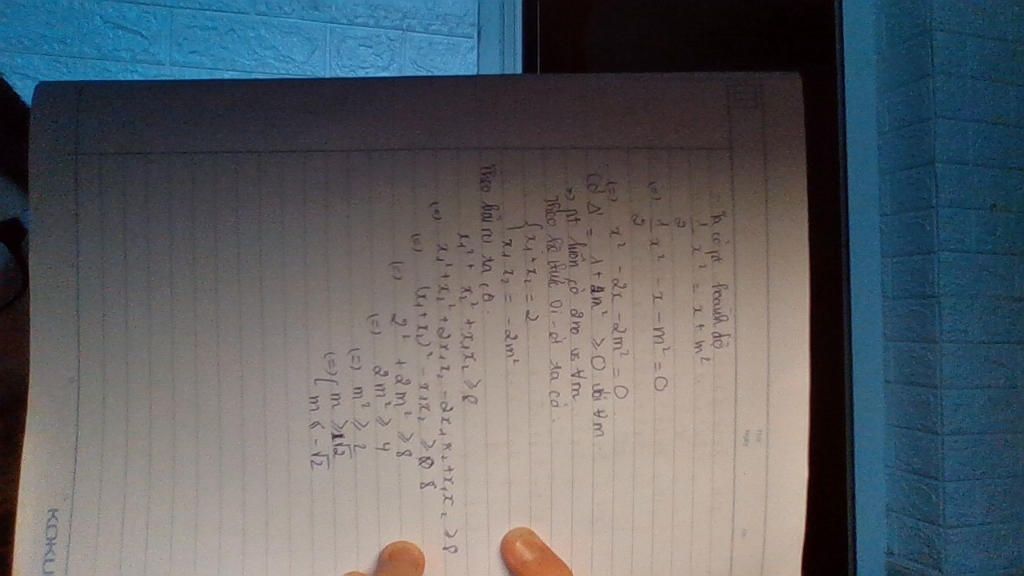 Xét pt hoành độ
1/2 x² = x + m²
(=) 1/2 x² - x - m² = 0
(=) x² - 2x - 2m² = 0
Có Δ' = 1 + 2m² > 0 với ∀m
=> pt luôn có 2no ∀m
Theo hệ thức Vi-ét ta có
{ x₁ + x₂ = 2
x₁x₂ = -2m²
Theo bài ra ta có
x₁² + x₂² + x₁x₂ ≥ 8
(=) x₁² + x₂² + 2x₁x₂ - 2x₁x₂ + x₁x₂ ≥ 8
(=) (x₁+x₂)² - x₁x₂ ≥ 8
(=) 2² + 2m² ≥ 8
(=) 2m² ≥ 4
(=) m² ≥ 2
(=) { m ≥ √2
m ≤ -√2
KOKU